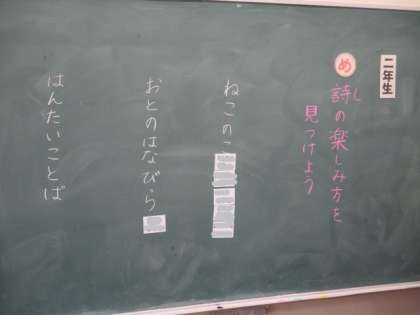 二年生
め
詩の楽しみ方を
し
見つけよう
ねこのこ
おとのはなびら
はんたいことば